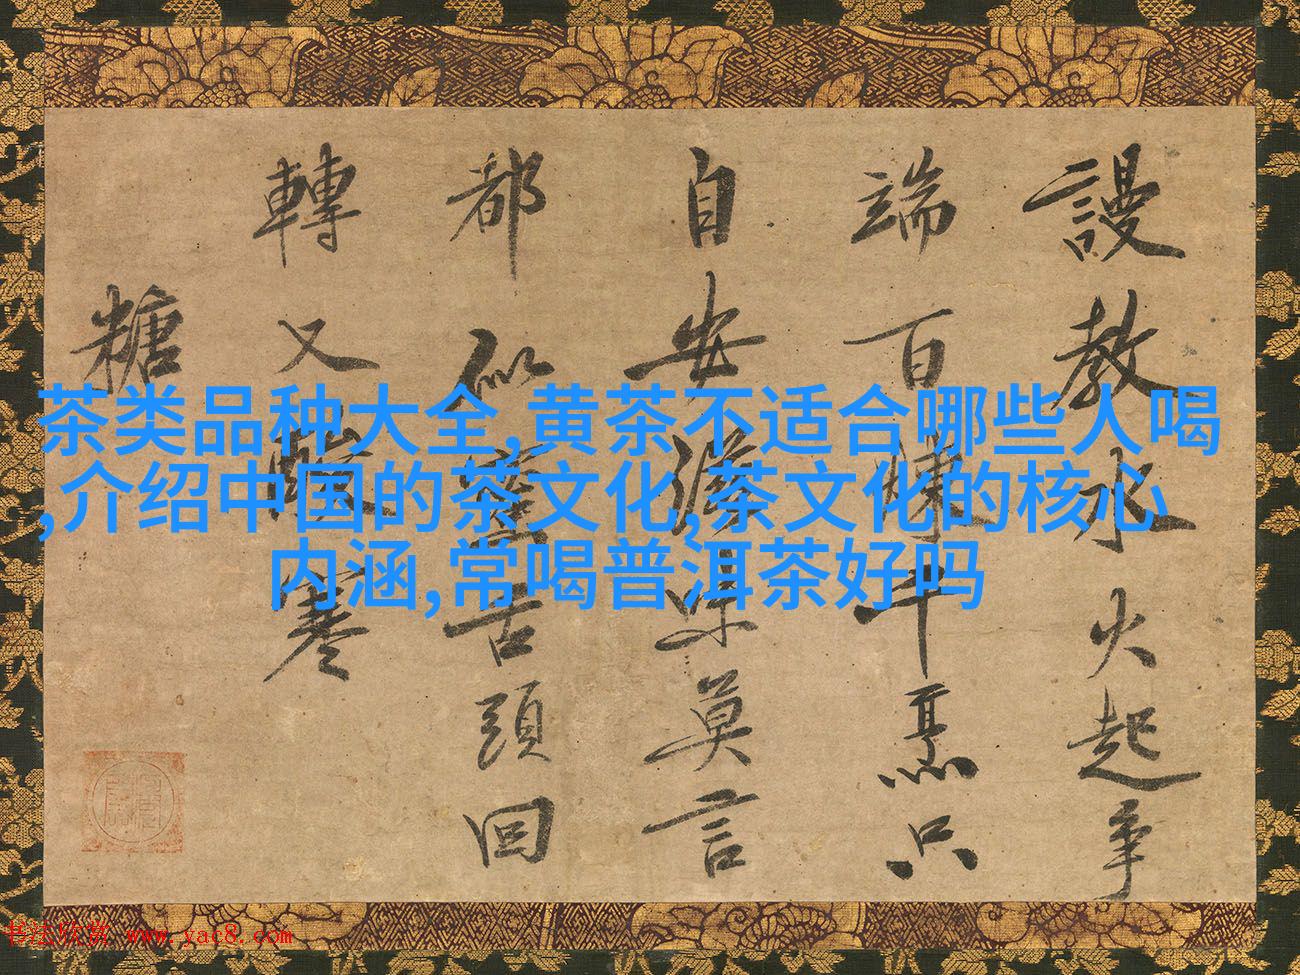 謾教水火起爭
端百煉千烹只
自安滋味莫言
都似蜜舌頭回
轉又酸寒
糖
茶类品种大全,黄茶不适合哪些人喝
,介绍中国的茶文化,茶文化的核心
内涵,常喝普洱茶好吗
书法欣赏 www.yac8.com